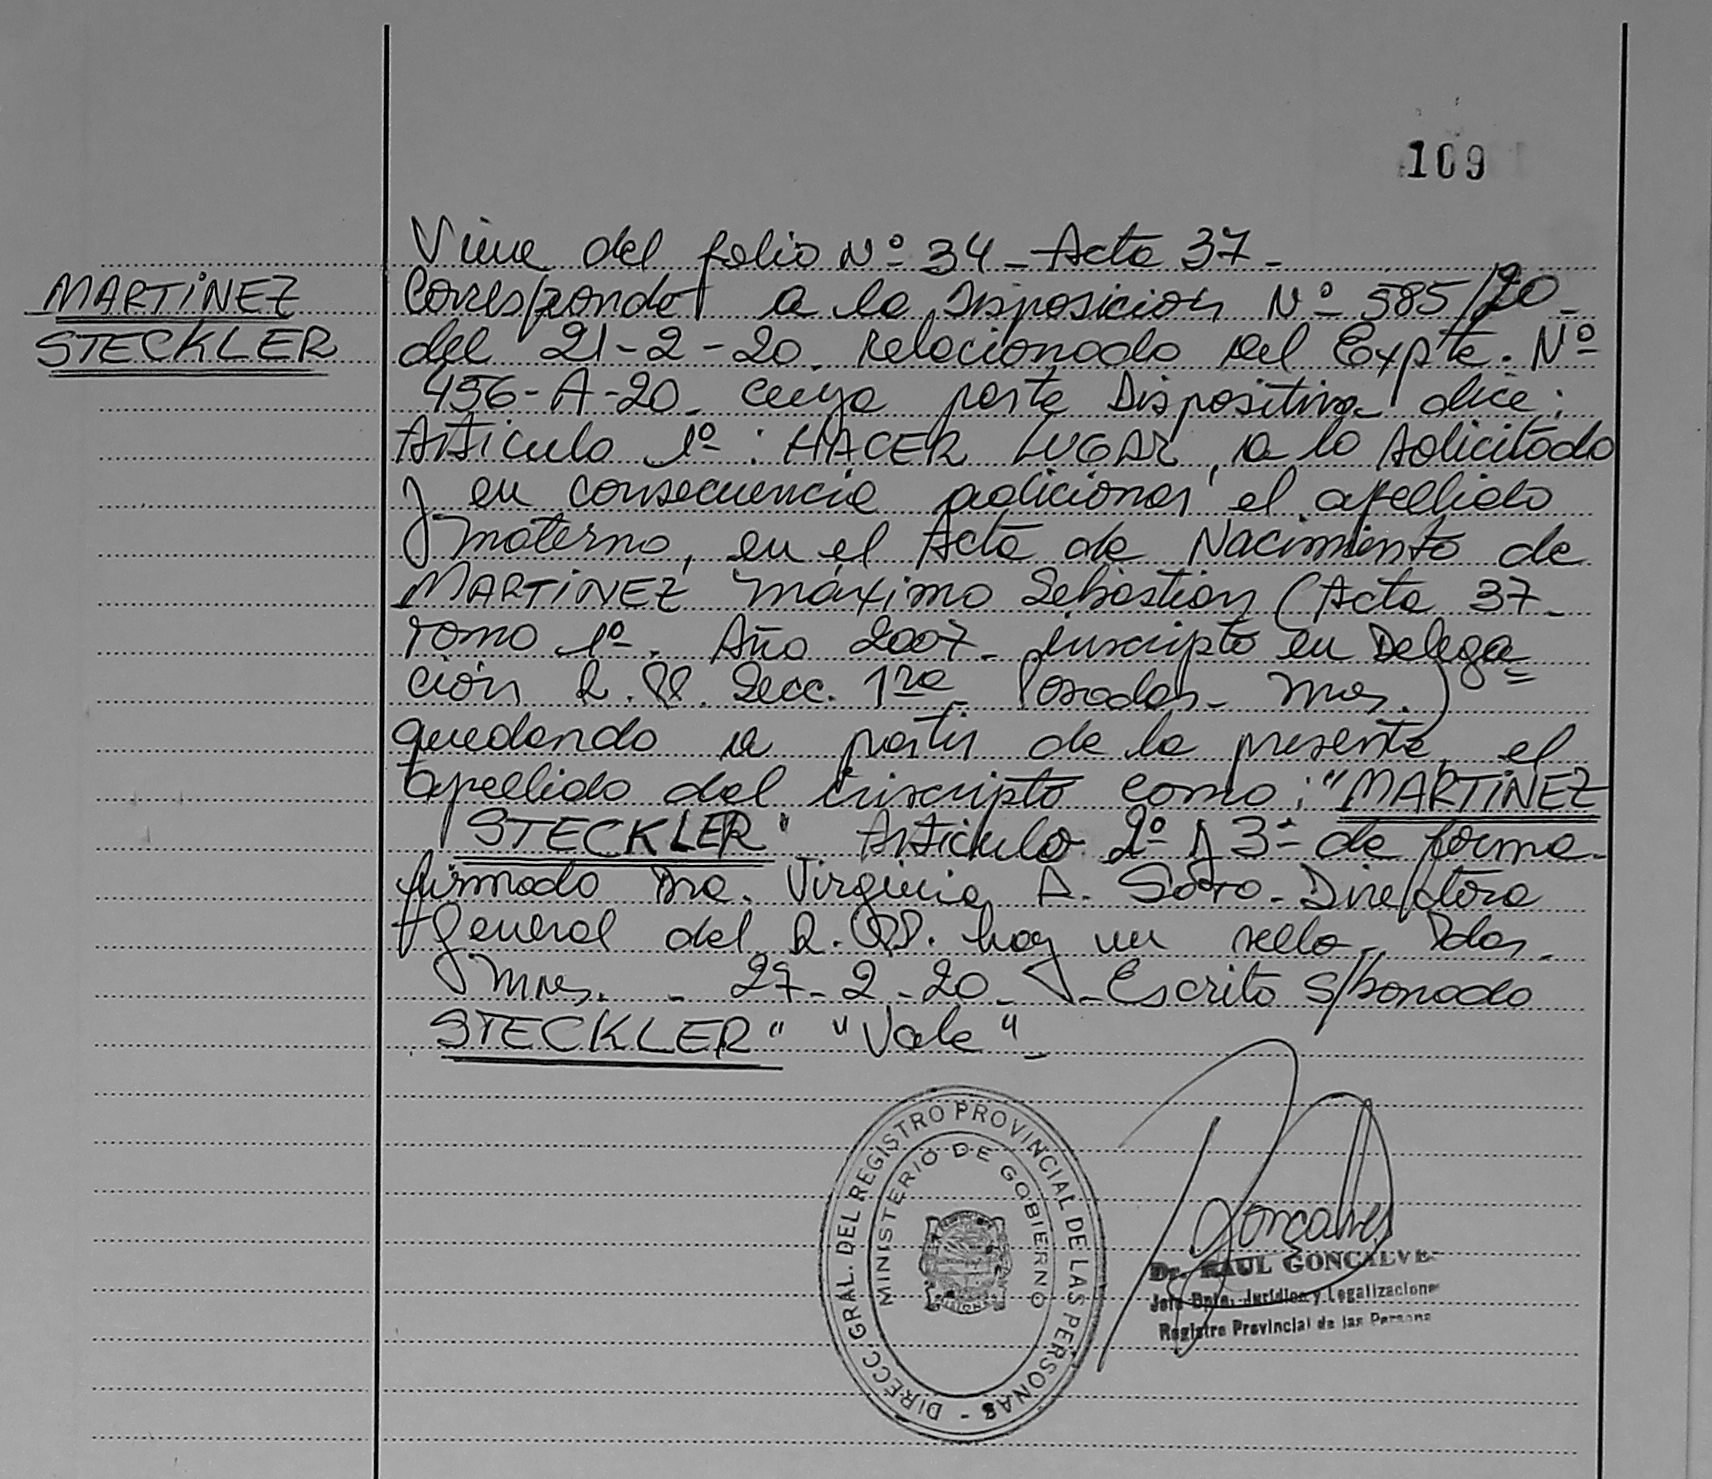 109
Viene del folio Nº 34 - Acta 37 -
MARTINEZ
STECKLER
Corresponde a la Disposición Nº 585/20 -
del 21-2-20. relacionado del Expte. Nº
456-A-20. cuya parte Dispositiva dice:
Artículo 1º: HACER LUGAR, a lo solicitado
y en consecuencia adicionar el apellido
materno, en el Acta de Nacimiento de
MARTINEZ Máximo Sebastián (Acta 37-
Tomo 1º. Año 2007- inscripto en Delega=
ción R.PP. Secc. 1ra Posadas- Mnes.)
quedando a partir de la presente, el
apellido del inscripto como: "MARTINEZ
STECKLER" Artículo 2º y 3º de forma-
firmado Dra. Virginia A. Soto- Directora
General del R.PP. hay un sello- Pdas.
Mnes. - 27-2-20. - Escrito s/bonado
STECKLER" "Vale"-
DIRECC. GRAL. DEL REGISTRO PROVINCIAL DE LAS PERSONAS -
MINISTERIO DE GOBIERNO
MISIONES
Gonçalves
Dr. RAUL GONCALVE
Jefe Dpto. Jurídico y Legalizacione
Registro Provincial de las Persona